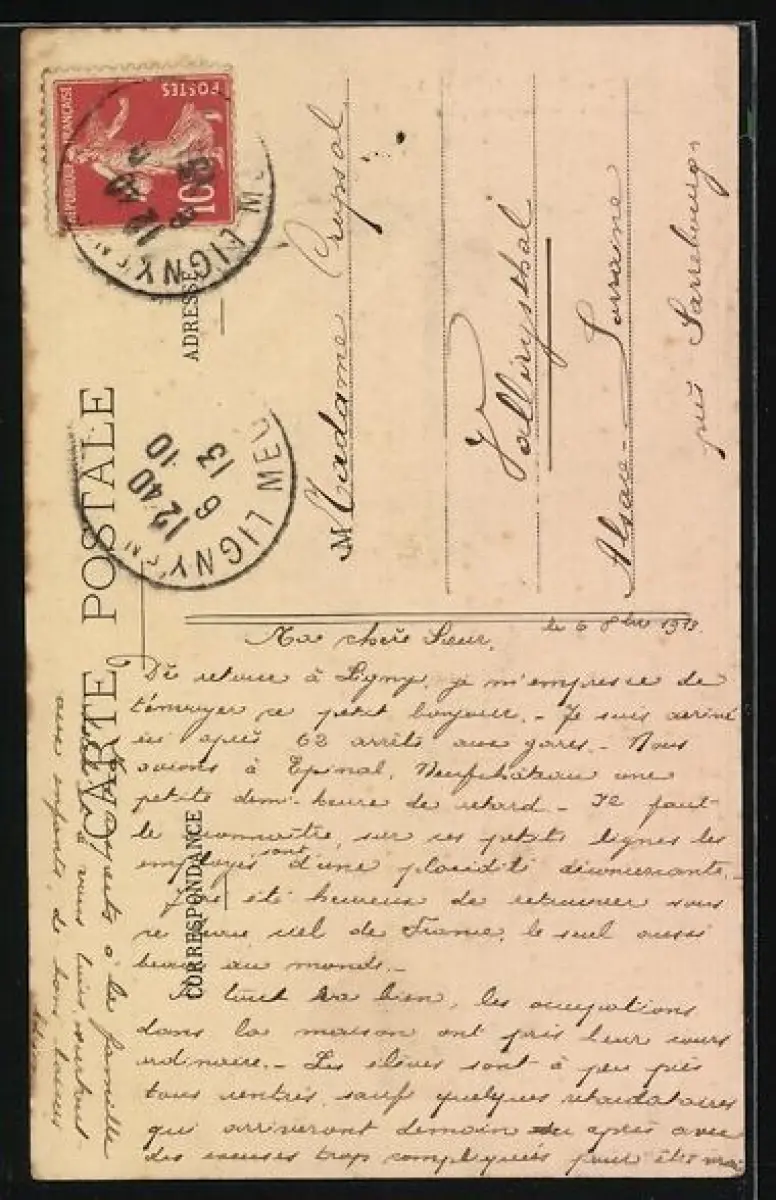 CARTE POSTALE
CORRESPONDANCE
ADRESSE
RÉPUBLIQUE FRANÇAISE
POSTES
10
LIGNY
12 40
LIGNY
12 40
6 10
13
Madame
Vallérysthal
Alsace-Lorraine
près Sarrebourg
le 6 8bre 1913.
Ma chère Sœur,
De retour à Ligny, je m'empresse de
t'envoyer ce petit bonjour. - Je suis arrivé
ici après 62 arrêts aux gares. - Nous
avions à Epinal, Neufchâteau une
petite demi-heure de retard - Il faut
le reconnaître, sur ces petits lignes les
employés sont d'une placidité déconcertante. -
J'ai été heureux de retrouver sous
ce beau ciel de France, le seul aussi
beau au monde. -
Ici tout va bien, les occupations
dans la maison ont pris leur cours
ordinaire. - Les élèves sont à peu près
tous rentrés, sauf quelques retardataires
qui arriveront demain ou après avec
des excuses trop compliquées pour être vrai
respects à la famille
à vous tous, surtout
aux enfants, de bons baisers